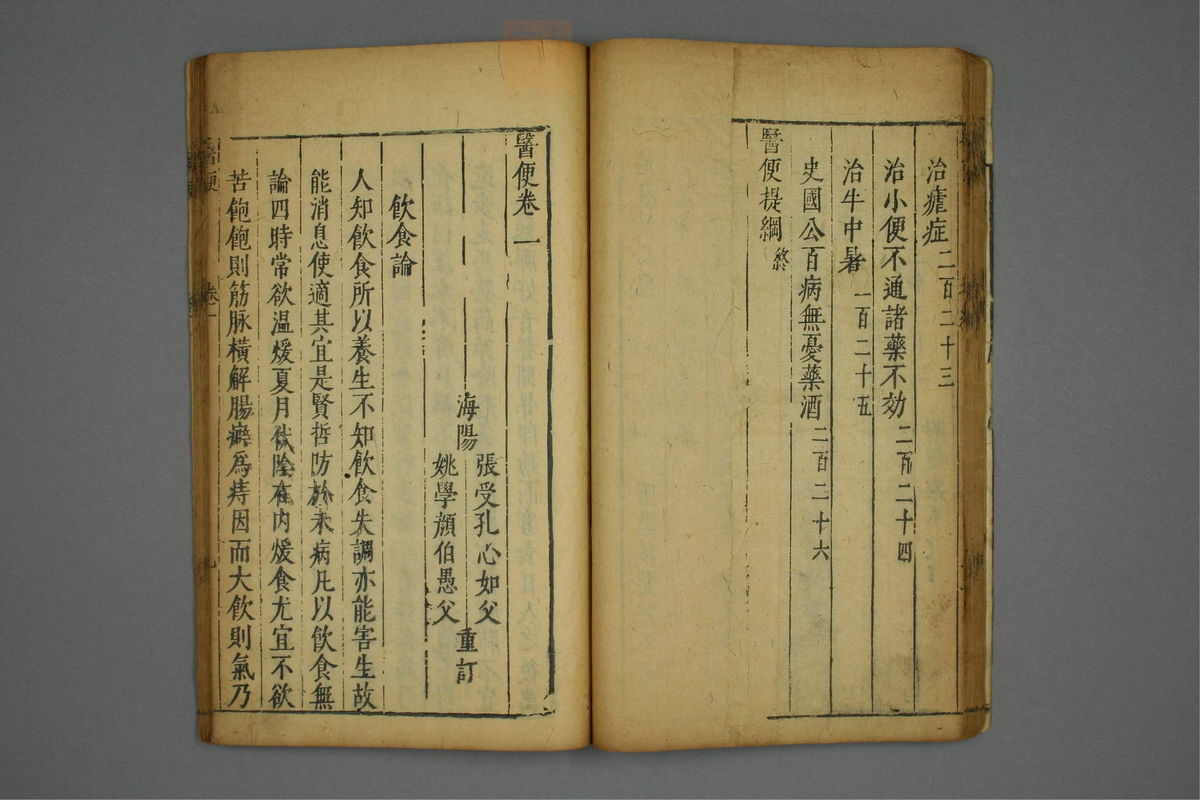 治瘧症二百二十三
治小便不通諸藥不効二百二十四
治牛中暑一百二十五
史國公百病無憂藥酒二百二十六
醫便提綱終
醫便卷一
張受孔心如父
海陽 重訂
姚學顏伯愚父
飲食論
人知飲食所以養生不知飲食失調亦能害生故
能消息使適其宜是賢哲防於未病凡以飲食無
論四時常欲温煖夏月伏陰在内煖食尤宜不欲
苦飽飽則筋脉橫解腸癖爲痔因而大飲則氣乃
醫便 卷一